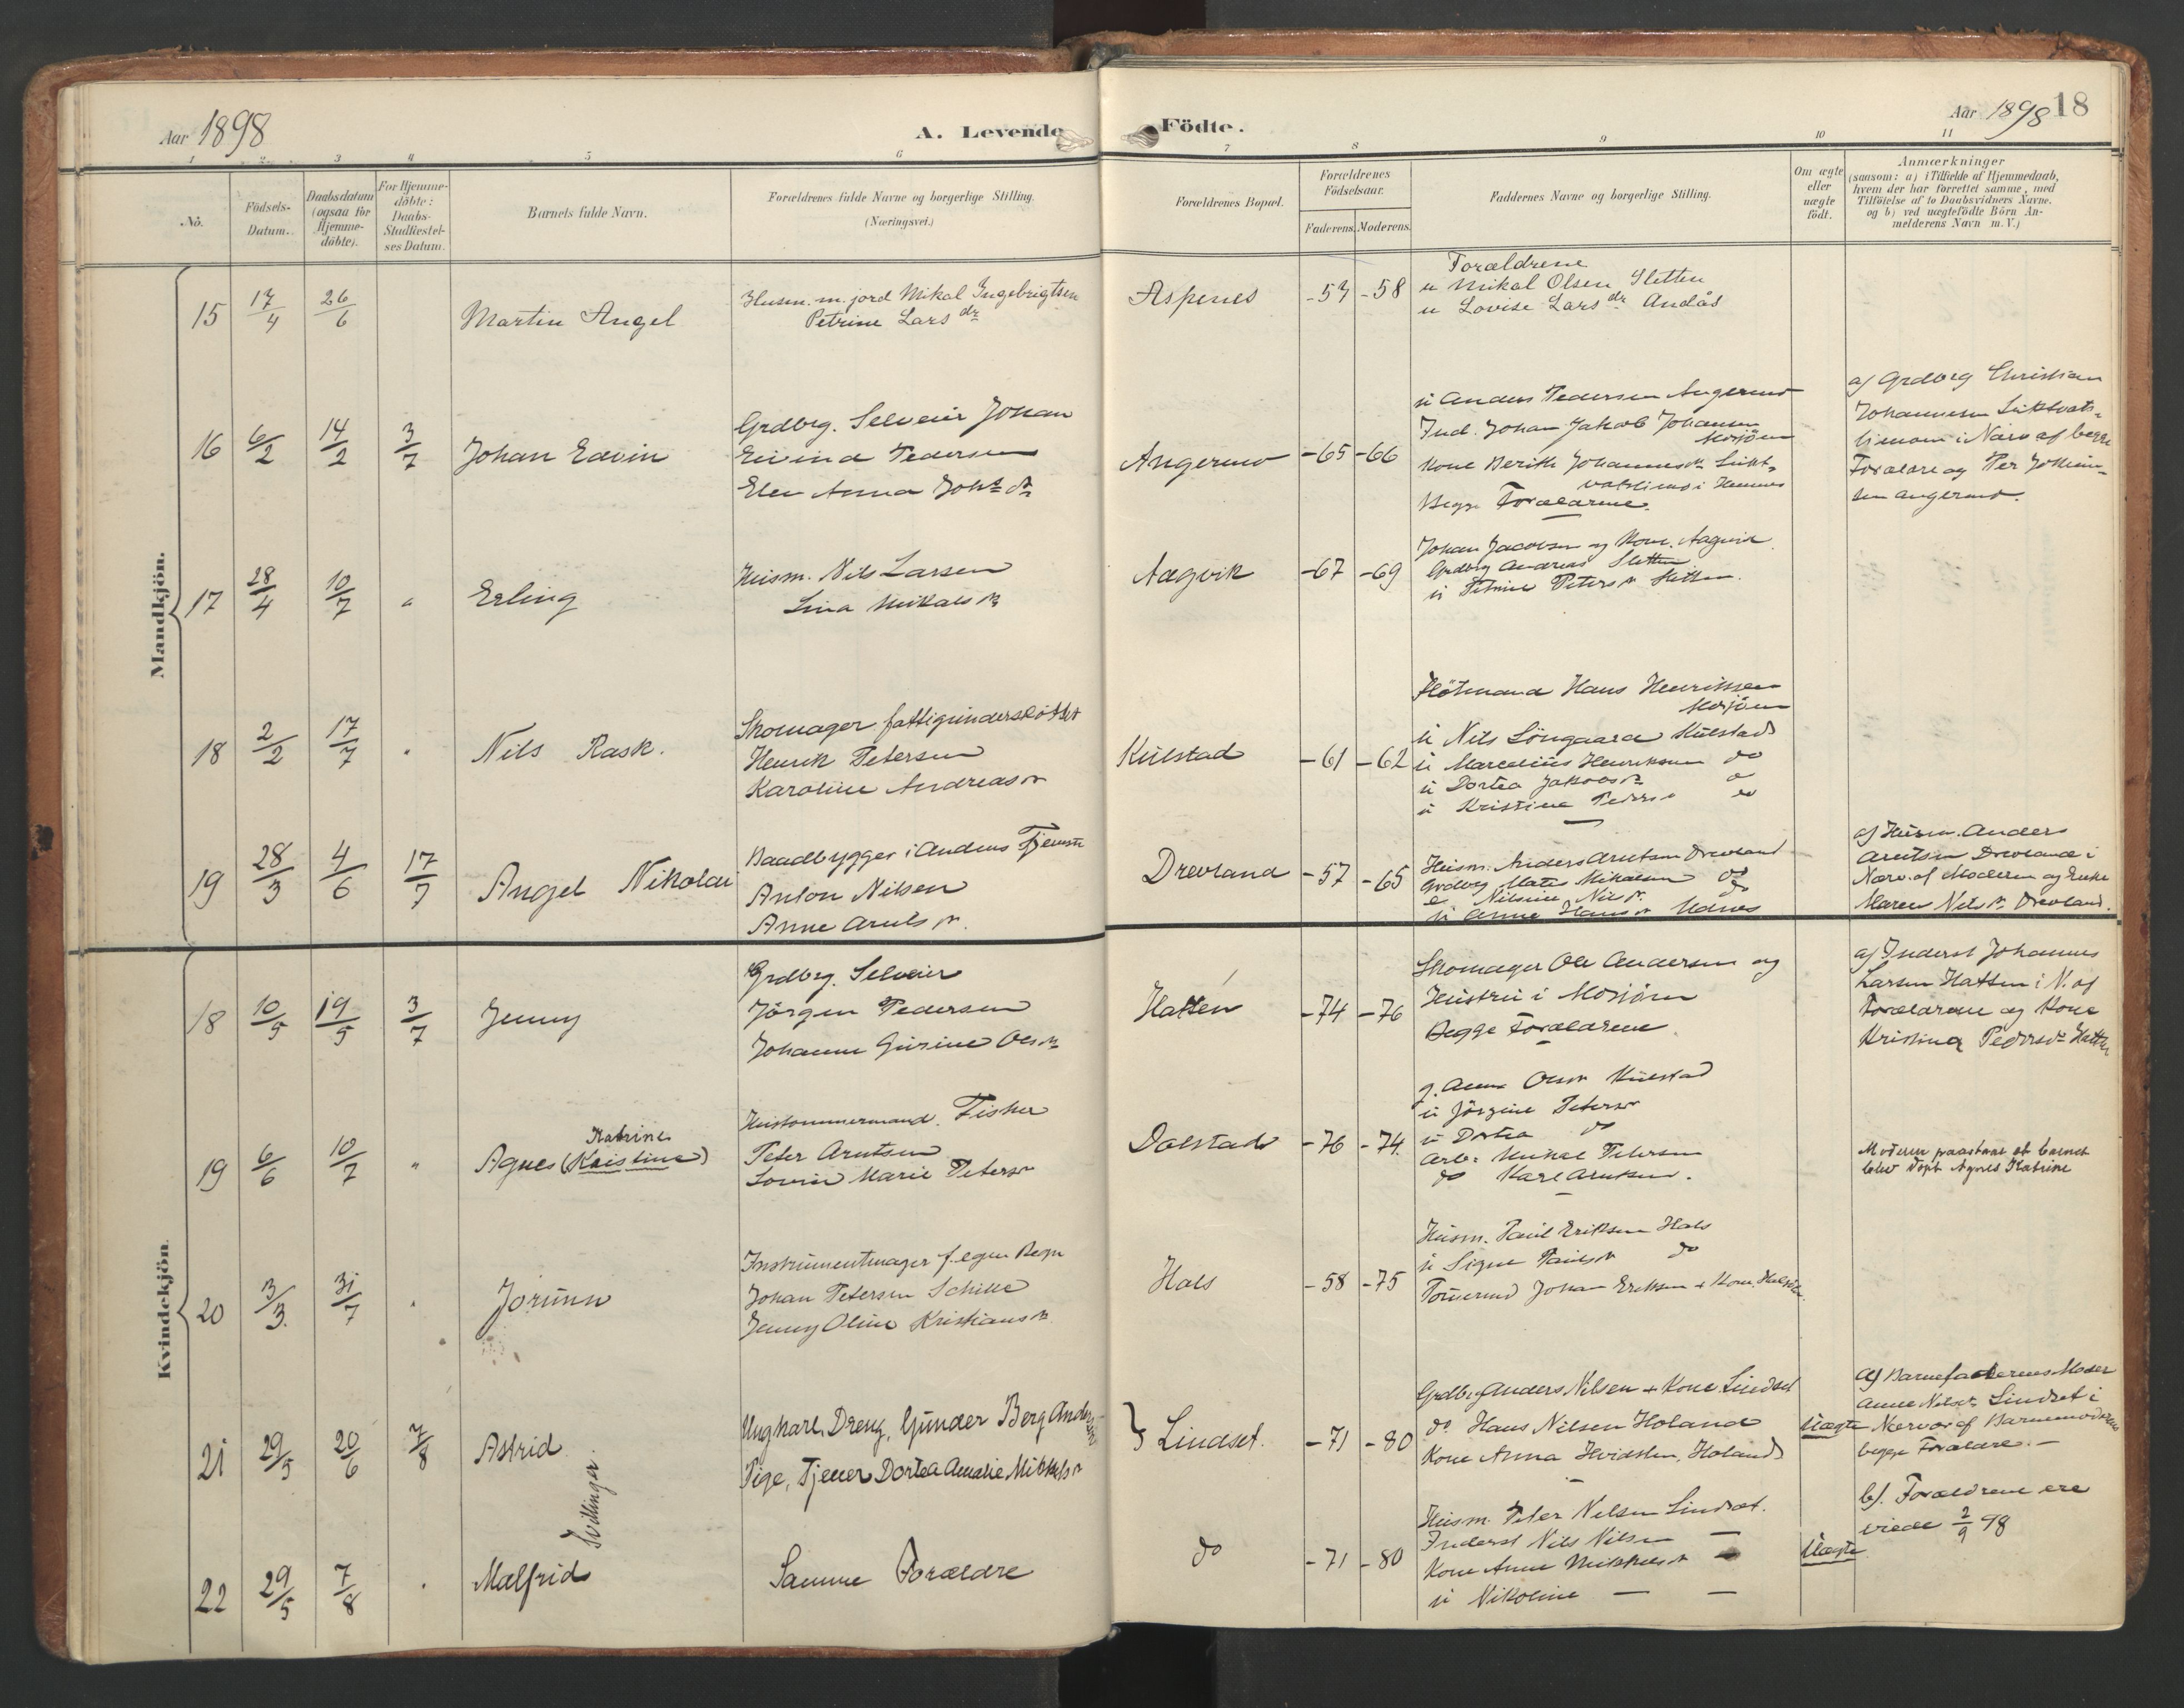 Aar 1898
A. Levende Födte.
Aar 1898 18
1 2 3 4 5 6 7 8 9 10 11
No.
Födsels-
Datum.
Daabsdatum
(ogsaa for
Hjemme-
döbte).
For Hjemme-
döbte:
Daabs-
Stadfæstel-
ses Datum.
Barnets fulde Navn.
Forældrenes fulde Navne og borgerlige Stilling.
(Næringsvei.)
Forældrenes Bopæl.
Forældrenes
Födselsaar.
Faderens. Moderens.
Faddernes Navne og borgerlige Stilling.
Om ægte
eller
uægte
födt.
Anmærkninger
(saasom: a) i Tilfælde af Hjemmedaab,
hvem der har forrettet samme, med
Tilföielse af to Daabsvidners Navne.
og b) ved uægtefödte Börn An-
melderens Navn m. V.)
Mandkjön.
15 17/4 26/6 Martin Angel
Husm. m. jord Mikal Ingebrigtsen
Petrine Larsdr
Aspenes -57 -58
Forældrene
u Mikal Olsen Sletten
u Lovise Larsdr Andås
16 6/2 14/2 3/7 Johan Edvin
Grdbrg. Selveier Johan
Eivind Pedersen
Elen Anna Johsdr
Angermo -65 -66
ú Anders Pedersen Angermo
Ind. Johan Jakob Johansen
Mosjöen
Kone Berith Johannesdr Lukt-
vatslimo i Hemnes
Begge Forældrene.
a) Grdbrg Christian
Johannesen Luktvats-
limom i Nærv. af begge
Forældre og Per
sen Angermo.
17 28/4 10/7 " Erling
Husm. Nils Larsen
Lina Mikalsdr
Aagvik -67 -69
Johan Jacobsen og Kone. Aagvik
Grdbrg Andreas Sletten
ú Petrine Petersdr Sletten.
18 2/2 17/7 " Nils Rask.
Skomager fattigunderstöttet
Henrik Petersen
Karoline Andreasdr
Kulstad -61 -62
Flötmand Hans Henriksen
Mosjöen
ú Nils Löngaard Kulstad
ú Marcelius Henriksen do
ú Dortea Jakobsdr do
ú Kristine Peders do
19 28/3 4/6 17/7 Angel Nikolai
Baadbygger i Andens Tjeneste
Anton Nilsen
Anne Arntsdr.
Drevland -57 -65
Husm. Anders Arntsen Drevland
Grdbrg Mates Mikalsen do
Nilsine Nilsdr. do
ú Anne Hansdr
a) Husm. Anders
Arntsen Drevland i
Nærv. af Moderen og Enke
Maren Nilsdr Drevland.
Kvindekjön.
18 10/5 19/5 3/7 Jenny
Grdbrg. Selveier
Jörgen Pedersen
Johanne Gurine Olsdr
Hatten -74 -76
Skomager Ole Andersen og
Hustru i Mosjöen
Begge Forældrene.
a) Inderst Johannes
Larsen Hatten i N. af
Forældrene og Kone
Kristina Pedersdr Hatten
19 6/6 10/7 " Katrine
Agnes (Kristine)
Hustømmermand. Fisker
Peter Arntsen
Lovise Marie Petersdr
Dolstad -76 -74.
g. Anne Olsdr Kulstad
ú Jörgine Petersdr
ú Dortea do
Arb. Mikal Petersen
do Karl Arntsen.
Moderen paastaar at barnet
blev døpt Agnes Katrine
20 3/3. 31/7 " Jorunn
Instrumentmager f. egen Regn
Johan Petersen Schille
Jenny Oline Kristiansdr
Hals -58 -75
Husm. Paul Eriksen Hals
ú Signe Paulsdr do
Johan Eriksen + Kone
21 29/5 20/6 7/8 Astrid
Ungkarl, Dreng, Gunder Berg Andersen
Pige, Tjener Dortea Amalie Mikkelsdr
Tvillinger.
} Lindset. -71 -80
Grdbrg Anders Nilsen + Kone Lindset
do Hans Nilsen Holand
Kone Anna Holand
Uægte
a) Barnefaderens Moder
Anne Nilsdr Lindset i
Nærvær af Barnemoderens
begge Forældre. —
b). Forældrene ere
viede 2/9 98
22 29/5 7/8 " Malfrid
Samme Forældre
do -71 -80
Husm. Peter Nilsen Lindset.
Inderst Nils Nilsen —
Kone Anne Mikkelsdr —
ú Nikoline — —
Uægte